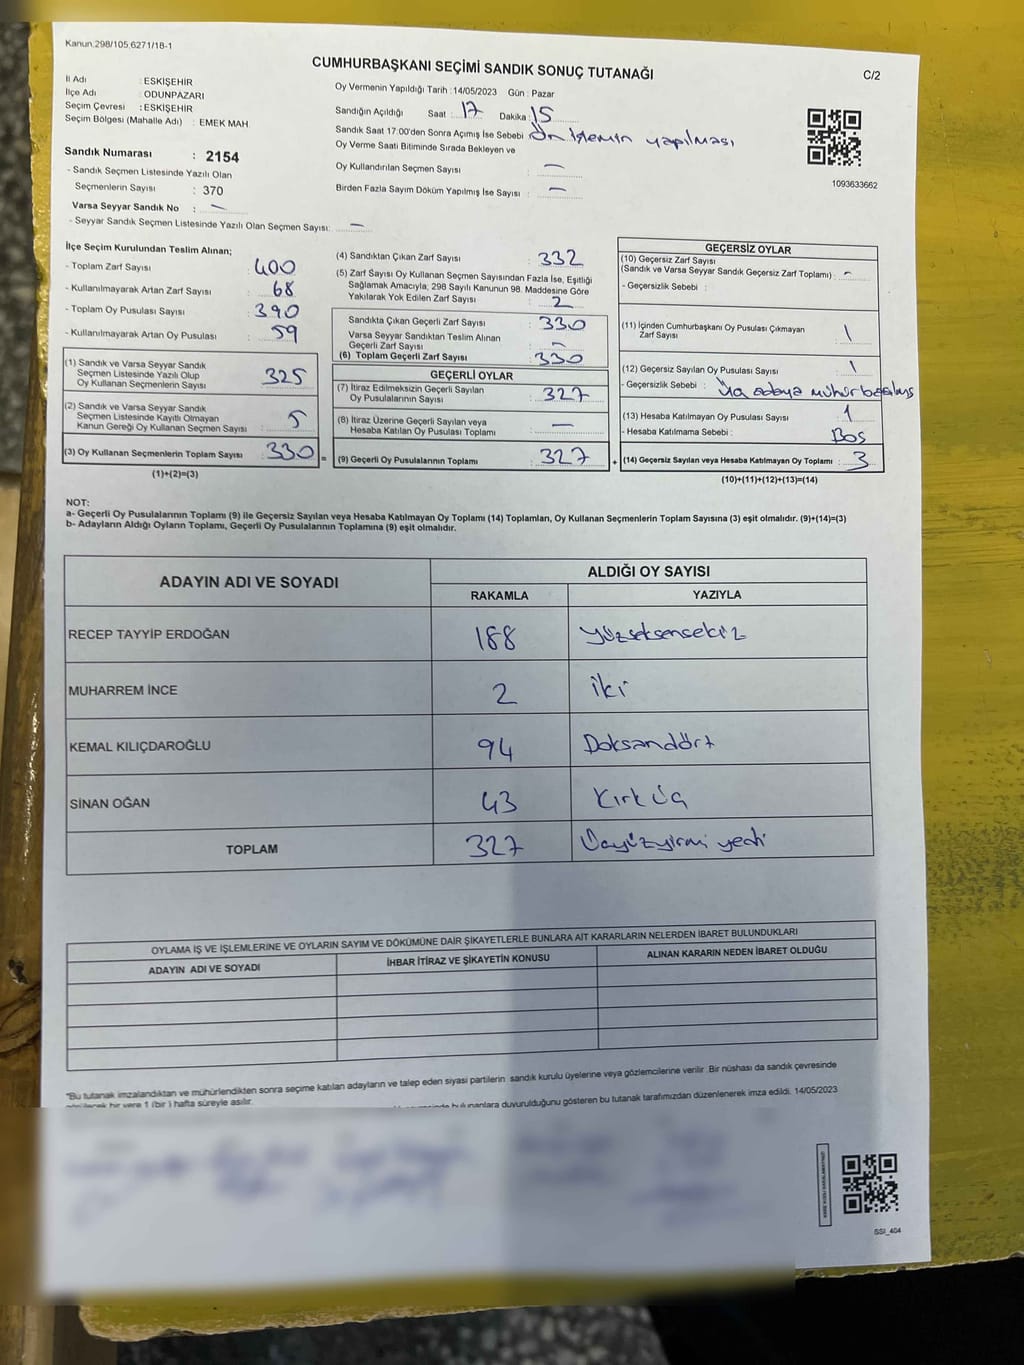 Kanun.298/105,6271/18-1
CUMHURBAŞKANI SEÇİMİ SANDIK SONUÇ TUTANAĞI
C/2
İl Adı : ESKİŞEHİR
İlçe Adı : ODUNPAZARI
Seçim Çevresi : ESKİŞEHİR
Seçim Bölgesi (Mahalle Adı) : EMEK MAH
Sandık Numarası : 2154
- Sandık Seçmen Listesinde Yazılı Olan
Seçmenlerin Sayısı : 370
Varsa Seyyar Sandık No : -
- Seyyar Sandık Seçmen Listesinde Yazılı Olan Seçmen Sayısı: -
Oy Vermenin Yapıldığı Tarih : 14/05/2023 Gün : Pazar
Sandığın Açıldığı Saat : 17 Dakika : 15
Sandık Saat 17:00'den Sonra Açımış İse Sebebi : Ön işlemin yapılması
Oy Verme Saati Bitiminde Sırada Bekleyen ve
Oy Kullandırılan Seçmen Sayısı : -
Birden Fazla Sayım Döküm Yapılmış İse Sayısı : -
1093633662
İlçe Seçim Kurulundan Teslim Alınan;
- Toplam Zarf Sayısı 400
- Kullanılmayarak Artan Zarf Sayısı 68
- Toplam Oy Pusulası Sayısı 390
- Kullanılmayarak Artan Oy Pusulası 59
(1) Sandık ve Varsa Seyyar Sandık
Seçmen Listesinde Yazılı Olup
Oy Kullanan Seçmenlerin Sayısı 325
(2) Sandık ve Varsa Seyyar Sandık
Seçmen Listesinde Kayıtlı Olmayan
Kanun Gereği Oy Kullanan Seçmen Sayısı : 5
(3) Oy Kullanan Seçmenlerin Toplam Sayısı : 330 =
(1)+(2)=(3)
(4) Sandıktan Çıkan Zarf Sayısı : 332
(5) Zarf Sayısı Oy Kullanan Seçmen Sayısından Fazla İse, Eşitliği
Sağlamak Amacıyla; 298 Sayılı Kanunun 98. Maddesine Göre
Yakılarak Yok Edilen Zarf Sayısı : 2
Sandıkta Çıkan Geçerli Zarf Sayısı : 330
Varsa Seyyar Sandıktan Teslim Alınan
Geçerli Zarf Sayısı : -
(6) Toplam Geçerli Zarf Sayısı : 330
GEÇERLİ OYLAR
(7) İtiraz Edilmeksizin Geçerli Sayılan
Oy Pusulalarının Sayısı : 327
(8) İtiraz Üzerine Geçerli Sayılan veya
Hesaba Katılan Oy Pusulası Toplamı : -
(9) Geçerli Oy Pusulalarının Toplamı : 327 +
GEÇERSİZ OYLAR
(10) Geçersiz Zarf Sayısı
(Sandık ve Varsa Seyyar Sandık Geçersiz Zarf Toplamı) : -
- Geçersizlik Sebebi :
(11) İçinden Cumhurbaşkanı Oy Pusulası Çıkmayan
Zarf Sayısı : 1
(12) Geçersiz Sayılan Oy Pusulası Sayısı : 1
- Geçersizlik Sebebi : Üç adaya mühür
(13) Hesaba Katılmayan Oy Pusulası Sayısı : 1
- Hesaba Katılmama Sebebi : Boş
(14) Geçersiz Sayılan veya Hesaba Katılmayan Oy Toplamı : 3
(10)+(11)+(12)+(13)=(14)
NOT:
a- Geçerli Oy Pusulalarının Toplamı (9) ile Geçersiz Sayılan veya Hesaba Katılmayan Oy Toplamı (14) Toplamları, Oy Kullanan Seçmenlerin Toplam Sayısına (3) eşit olmalıdır. (9)+(14)=(3)
b- Adayların Aldığı Oyların Toplamı, Geçerli Oy Pusulalarının Toplamına (9) eşit olmalıdır.
ADAYIN ADI VE SOYADI ALDIĞI OY SAYISI
RAKAMLA YAZIYLA
RECEP TAYYİP ERDOĞAN 188 Yüzseksensekiz
MUHARREM İNCE 2 iki
KEMAL KILIÇDAROĞLU 94 Doksandört
SİNAN OĞAN 43 Kırk üç
TOPLAM 327 Üçyüzyirmi yedi
OYLAMA İŞ VE İŞLEMLERİNE VE OYLARIN SAYIM VE DÖKÜMÜNE DAİR ŞİKAYETLERLE BUNLARA AİT KARARLARIN NELERDEN İBARET BULUNDUKLARI
ADAYIN ADI VE SOYADI İHBAR İTİRAZ VE ŞİKAYETİN KONUSU ALINAN KARARIN NEDEN İBARET OLDUĞU
"Bu tutanak imzalandıktan ve mühürlendikten sonra seçime katılan adayların ve talep eden siyasi partilerin sandık kurulu üyelerine veya gözlemcilerine verilir. Bir nüshası da sandık çevresinde
görülecek bir yere 1 (bir) hafta süreyle asılır.
bulunanlara duyurulduğunu gösteren bu tutanak tarafımızdan düzenlenerek imza edildi. 14/05/2023
SSI_404